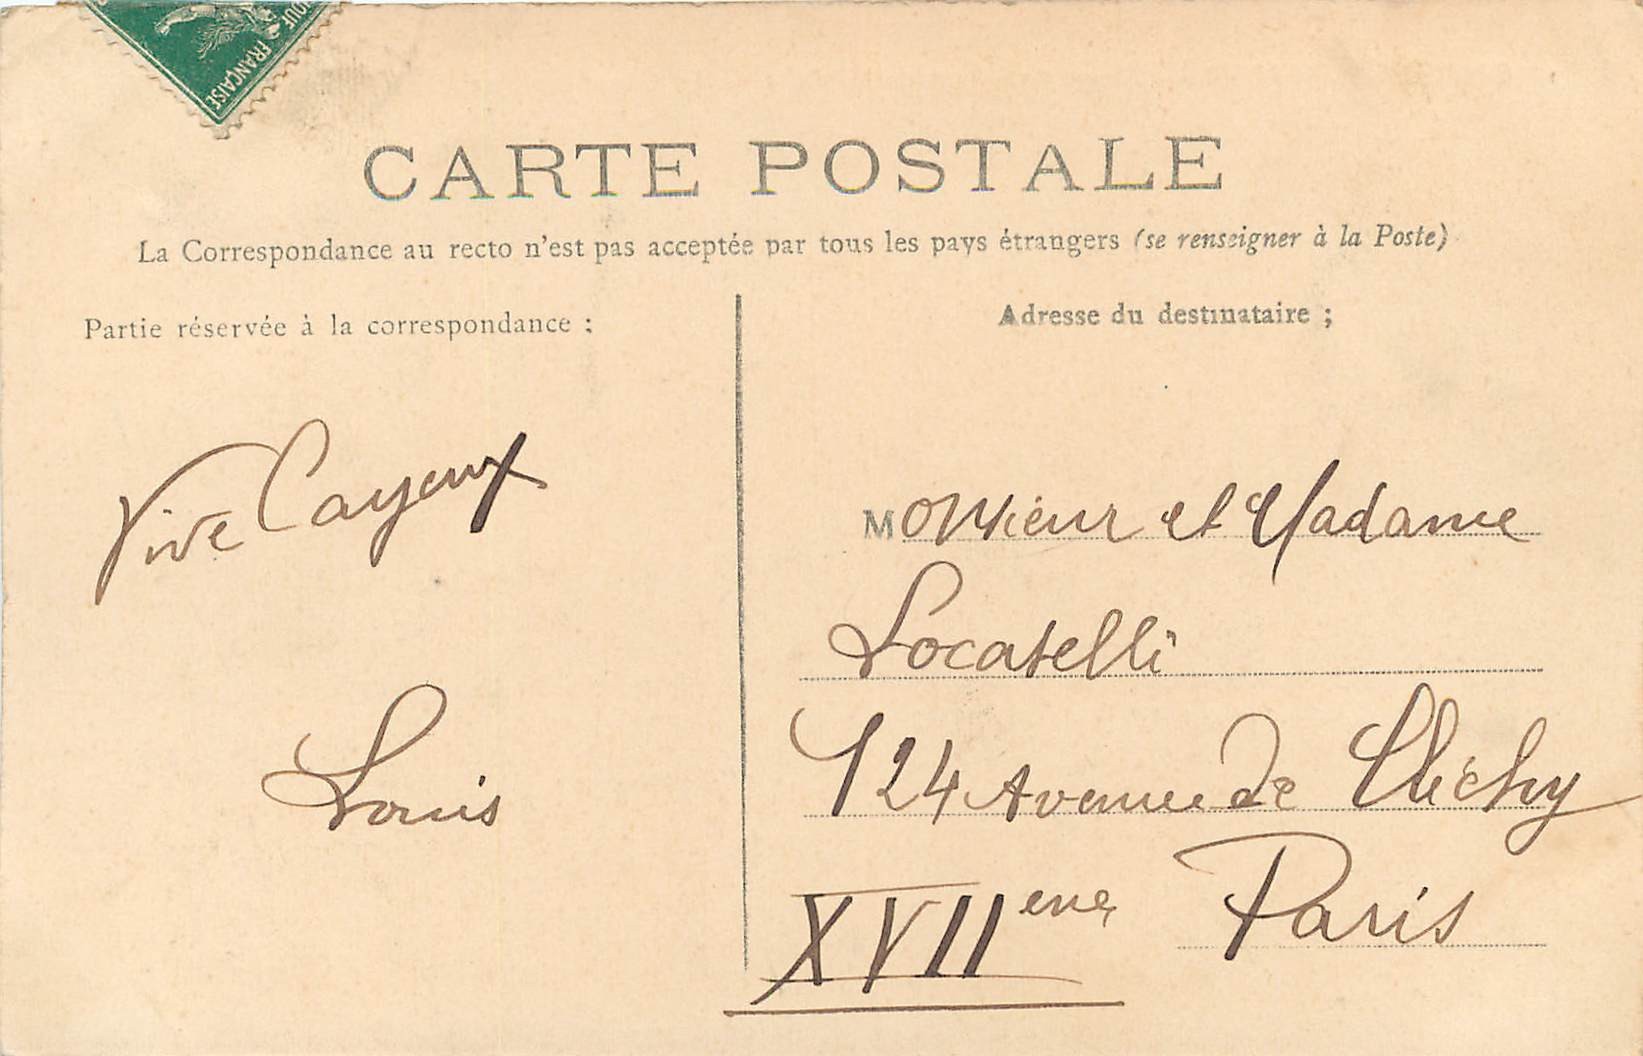 QUE FRANÇAISE
CARTE POSTALE
La Correspondance au recto n'est pas acceptée par tous les pays étrangers (se renseigner à la Poste)
Partie réservée à la correspondance :
Vive Cayeux
Louis
Adresse du destinataire ;
Monsieur et Madame
Locatelli
124 Avenue de Clichy
XVII eme Paris